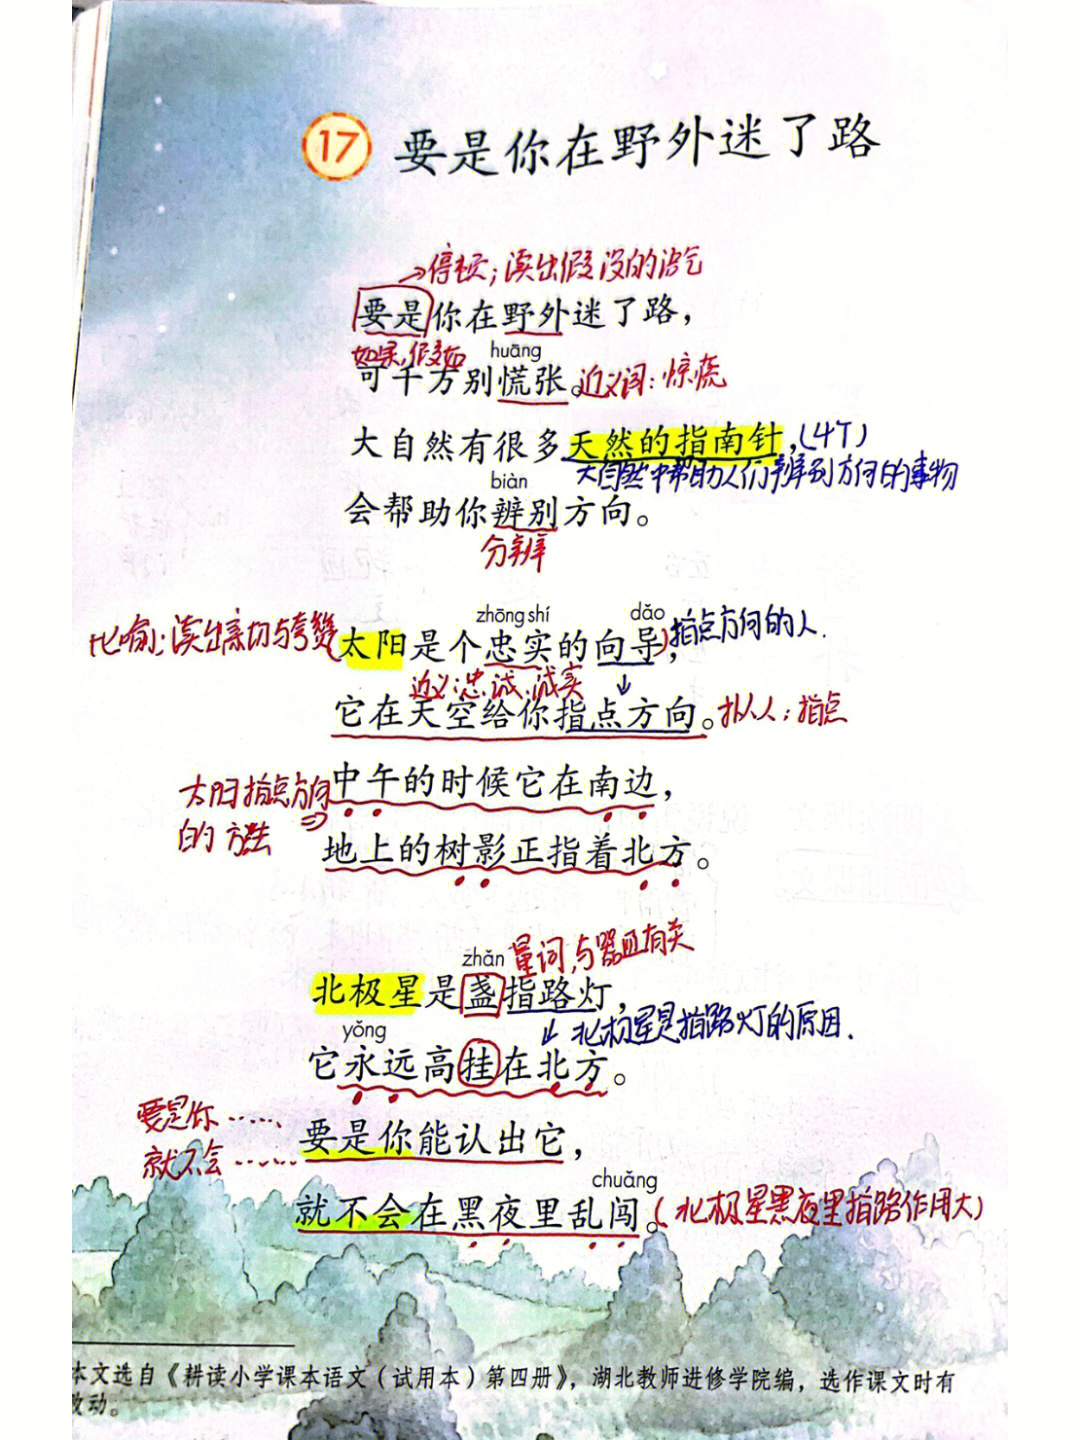 17 要是你在野外迷了路
→停顿；读出假设的语气
要是你在野外迷了路，
如果，假如
huāng
可千万别慌张。近义词：惊慌
大自然有很多天然的指南针，(4个)
大自然中帮助人们辨别方向的事物
biàn
会帮助你辨别方向。
分辨
zhōng shí dǎo
比喻；读出亲切与夸赞(太阳是个忠实的向导)，指点方向的人.
近义：忠诚、诚实
它在天空给你指点方向。拟人；指点
太阳指点方向的方法⇒
中午的时候它在南边，
地上的树影正指着北方。
zhǎn 量词，与器皿有关
北极星是盏指路灯，
↓北极星是指路灯的原因.
yǒng
它永远高挂在北方。
要是你……
就不会……
要是你能认出它，
chuǎng
就不会在黑夜里乱闯。(北极星黑夜里指路作用大)
本文选自《耕读小学课本语文（试用本）第四册》，湖北教师进修学院编，选作课文时有
改动。